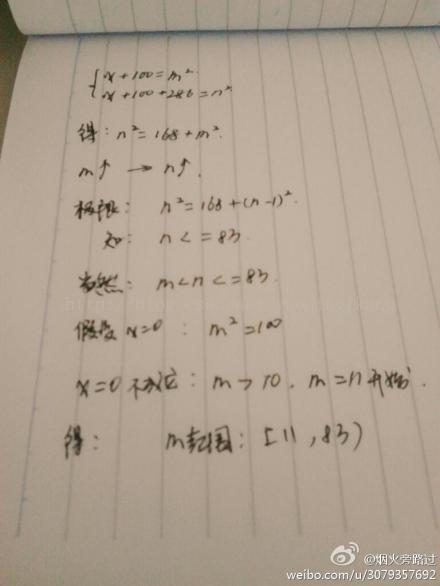 x+100=m²
x+100+286=n²
得：n²=168+m²
m↑ → n↑.
极限： n²=168+(n-1)².
知： n<=83.
当然： m<n<=83.
假设x=0： m²=100
x=0不成立：m>10. m=11开始
得： m范围：[11,83)
@烟火旁路过
weibo.com/u/3079357692